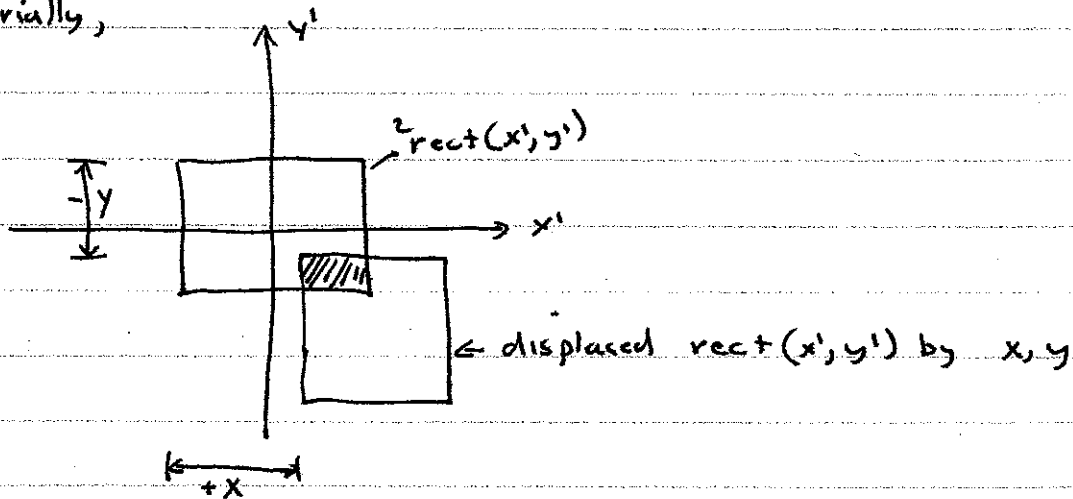 rially,
y'
²rect(x', y')
- y
x'
← displaced rect(x', y') by x, y
+x